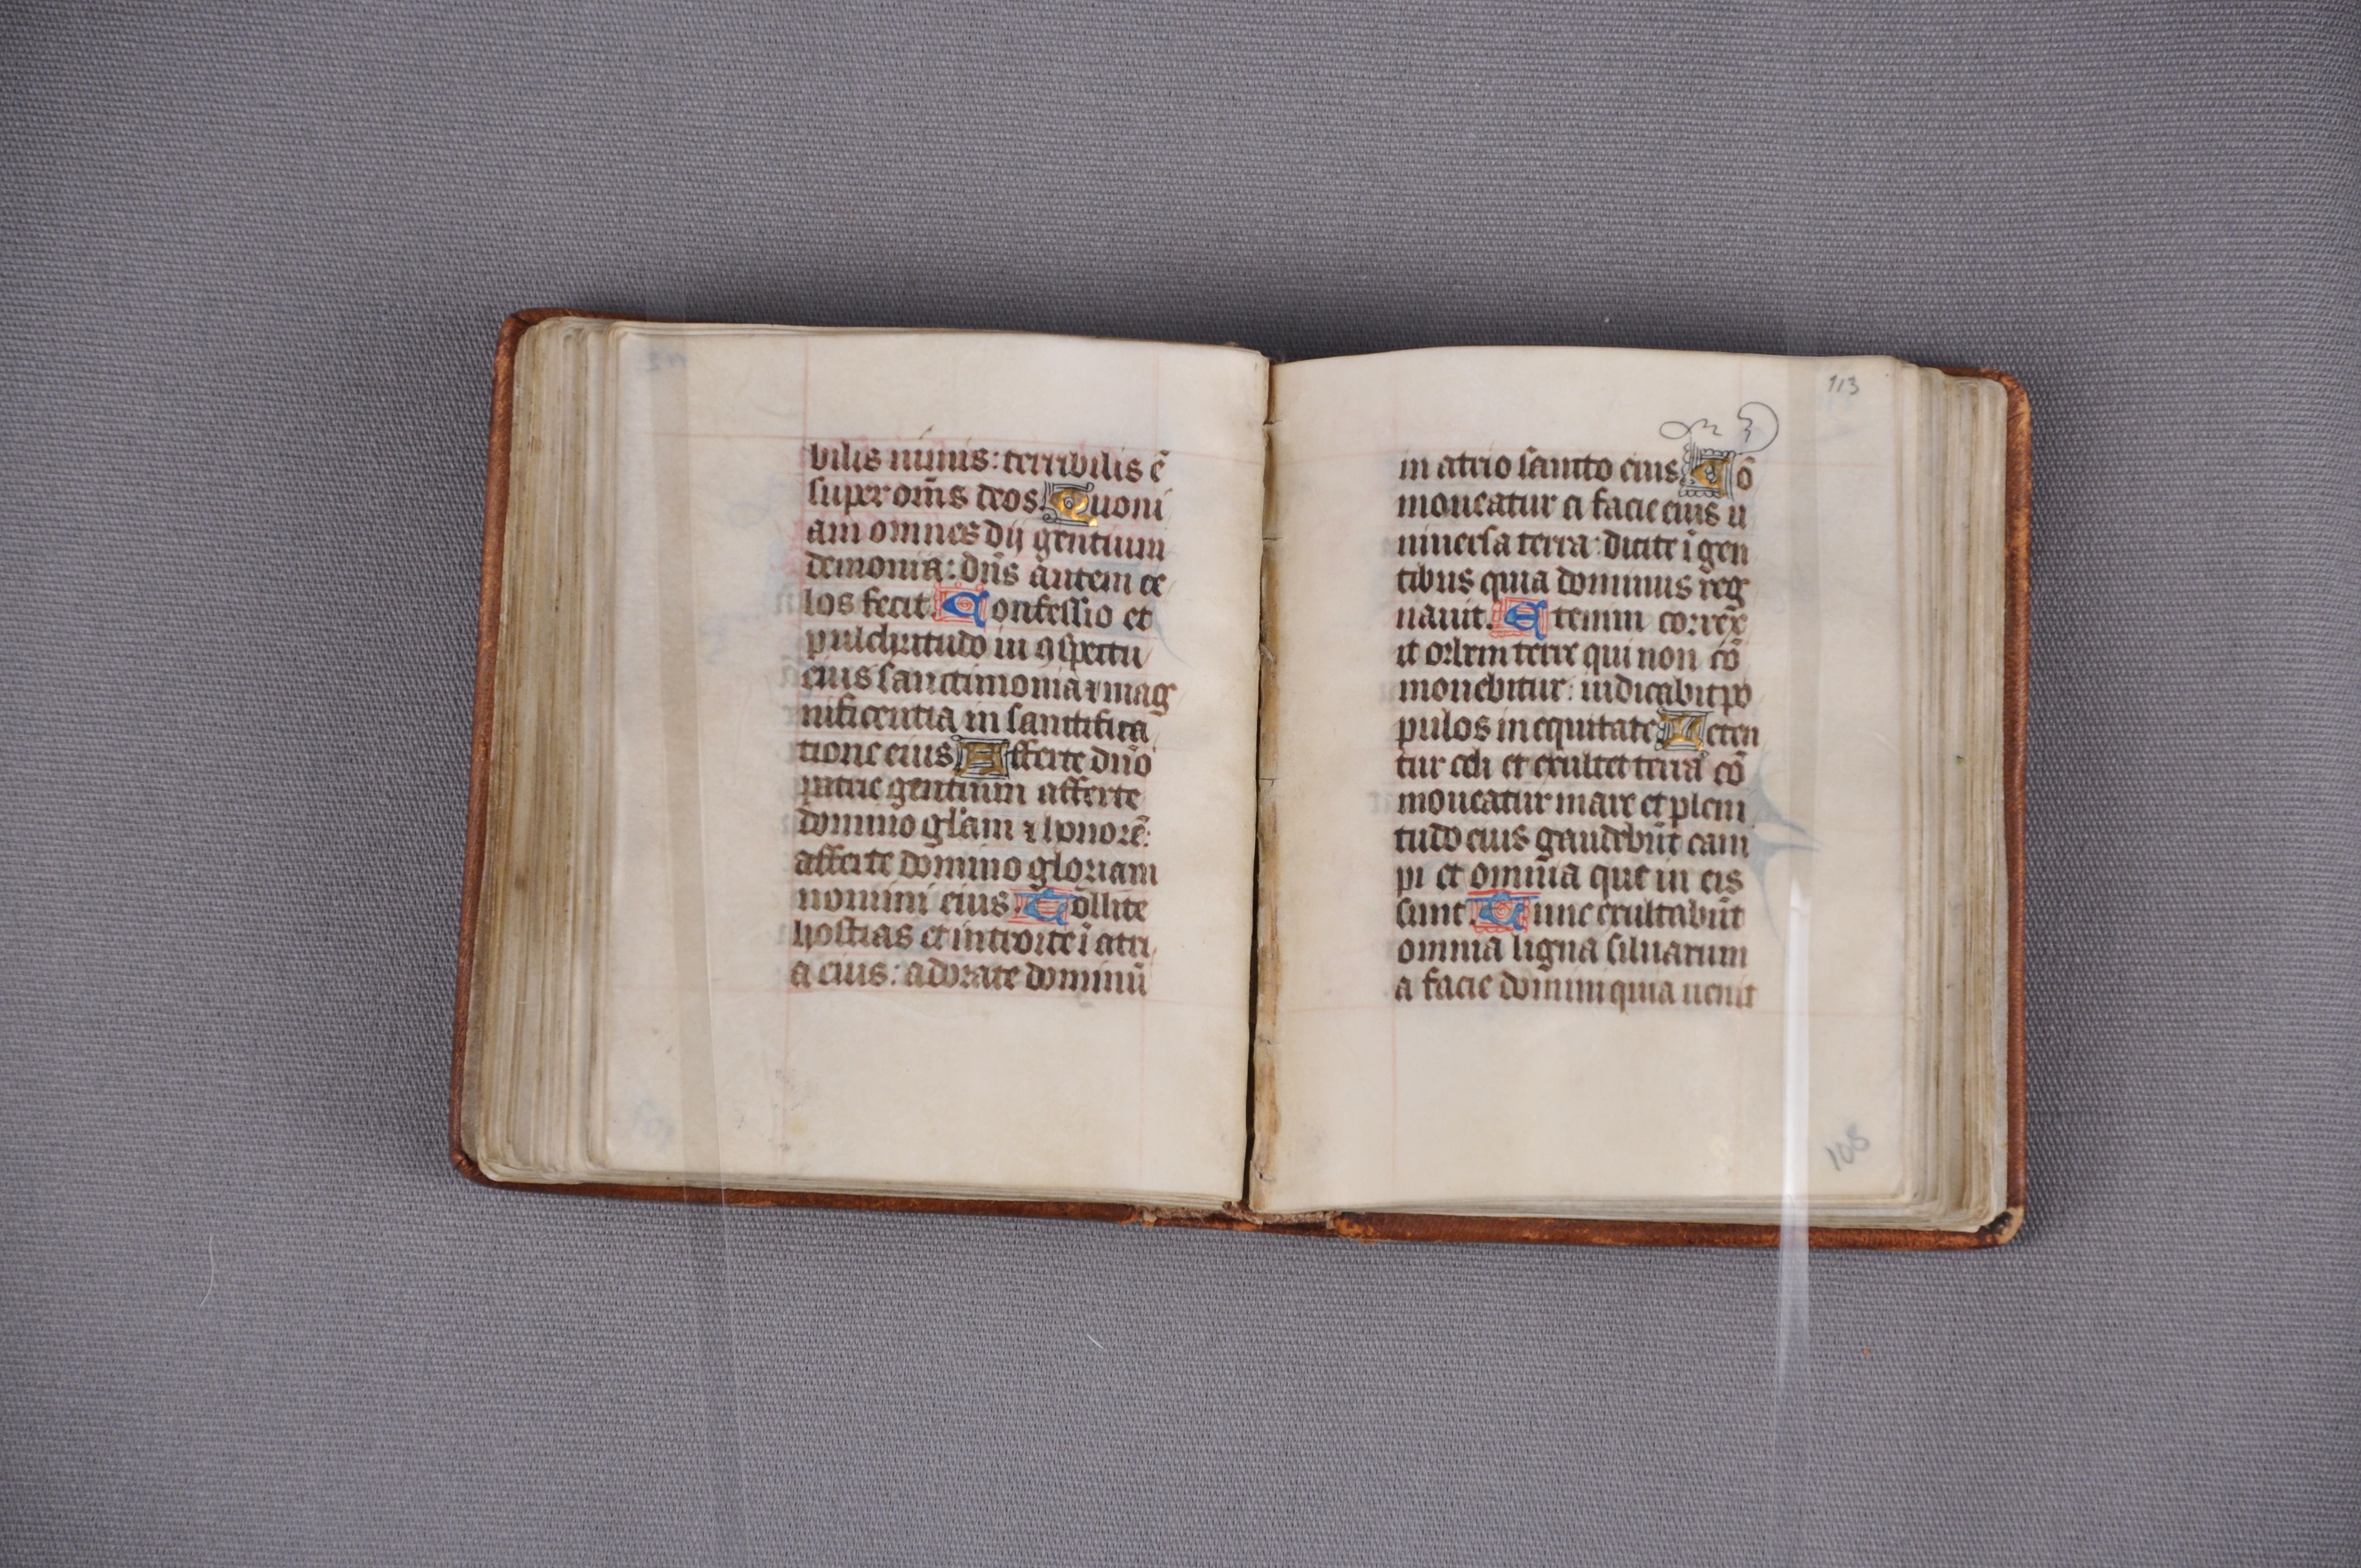 bilis nimis: terribilis ē
super om̄s deos. Quoni
am omnes dij gentium
demonia: dn̄s autem ce
los fecit. Confessio et
pulchritudo in ꝯspectu
eius sanctimonia ⁊ mag
nificentia in sanctifica
tione eius Afferte dn̄o
patrie gentium afferte
domino gl̄am ⁊ honorē:
afferte domino gloriam
nomini eius. Tollite
hostias et introite ī atri
a eius: adorate dominū
113
in atrio sancto eius Cō
moueatur a facie eius u
niuersa terra: dicite ī gen
tibus quia dominus reg
nauit. Etenim correx
it orbem terre qui non cō
mouebitur: iudicabit po
pulos in equitate Leten
tur celi et exultet terra cō
moueatur mare et pleni
tudo eius gaudebūt cam
pi et omnia que in eis
sunt. Tunc exultabūt
omnia ligna siluarum
a facie domini quia uenit
108